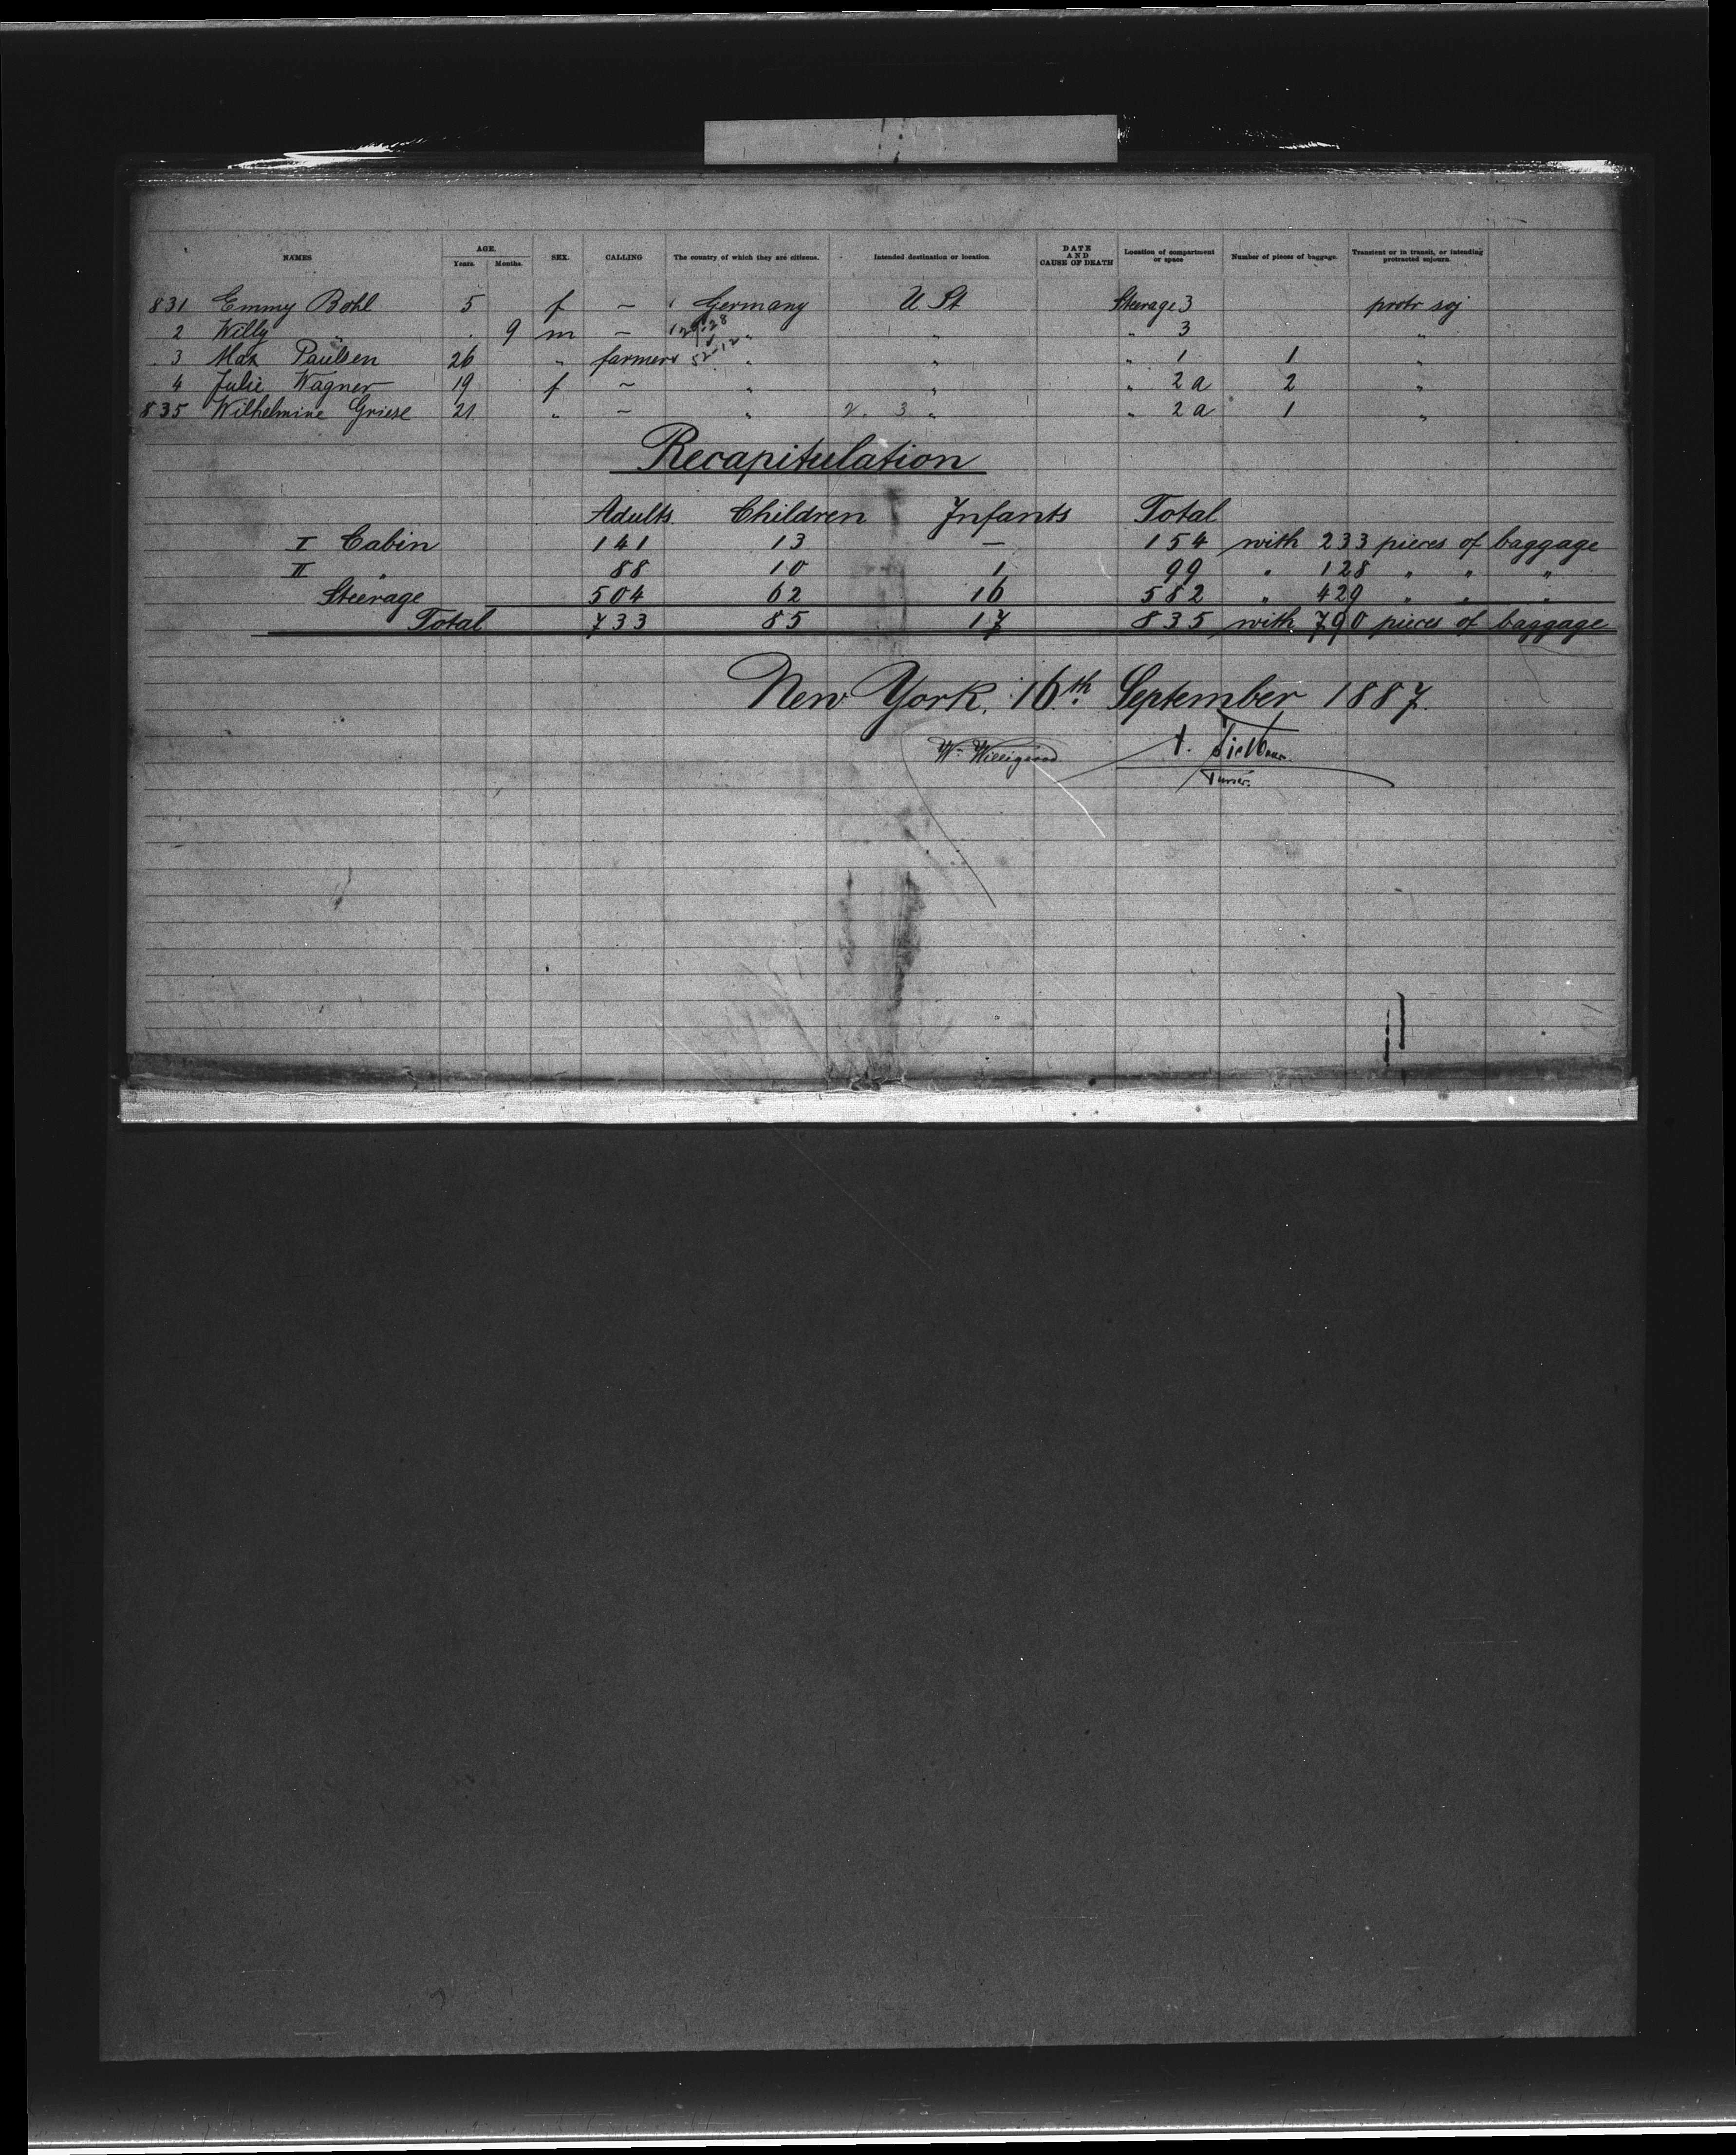 NAMES AGE. Years. Months. SEX. CALLING The country of which they are citizens. Intended destination or location. DATE AND CAUSE OF DEATH Location of compartment or space Number of pieces of baggage. Transient or in transit, or intending protracted sojourn.
831 Emmy Bohl 5 f — Germany U. St Steerage 3 protr soj
2 Willy " 9 m — " " " 3 "
3 Max Paulsen 26 " farmer " " " 1 1 "
4 Julie Wagner 19 f — " " " 2a 2 "
835 Wilhelmine Griese 21 " — " " " 2a 1 "
Recapitulation
Adults Children Infants Total
I Cabin 141 13 — 154 with 233 pieces of baggage
II " 88 10 1 99 " 128 " " "
Steerage 504 62 16 582 " 429 " " "
Total 733 85 17 835 with 790 pieces of baggage
New York, 16th September 1887.
W. Willigerod
Purser.